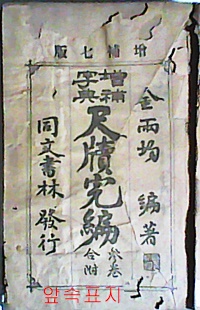 增補七版
金雨均 編著
增補字典
尺牘完編
叅卷
合附
同文書林 發行
앞속표지